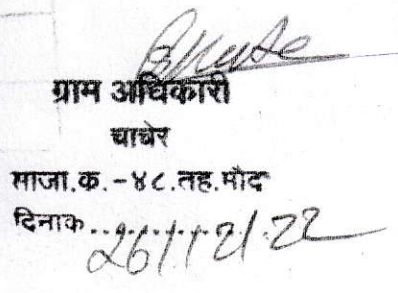 ग्राम अधिकारी
चाचेर
साजा.क.-४८.तह.मौद
दिनाक..........
26/12/22